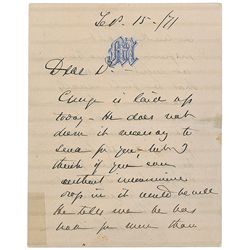 Sep. 15 - /71
Dear Dr -
is laid up
today - He does not
deem it necessary to
send for you, but I
think if you can
without inconvenience
drop in it would be well
He tells me he has
for more than